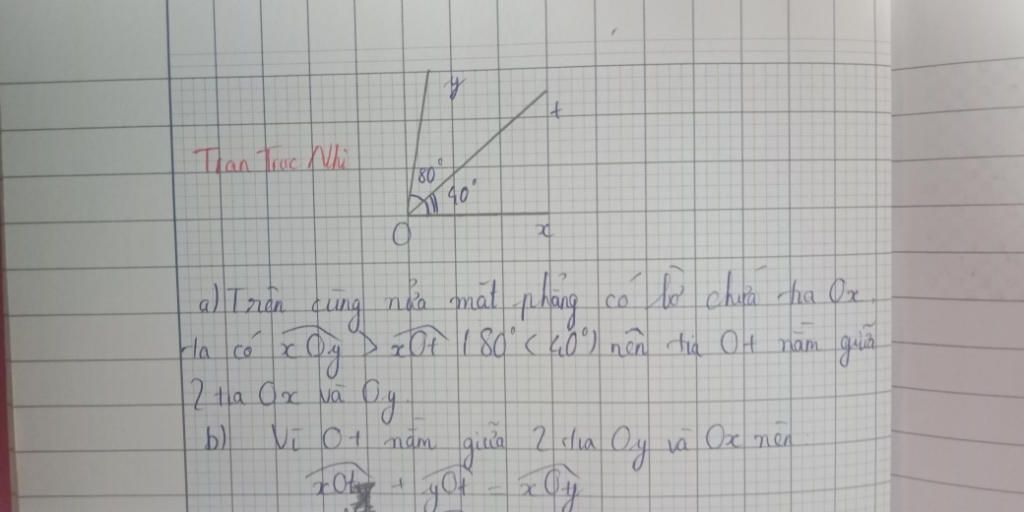 y
t
Tran Truc Nhi
80°
40°
O
x
a) Trên cùng nửa mặt phẳng có bờ chứa tia Ox.
ta có xOy > xOt (80° < 40°) nên tia Ot nằm giữa
2 tia Ox và Oy.
b) Vì Ot nằm giữa 2 tia Oy và Ox nên
xOt + yOt = xOy